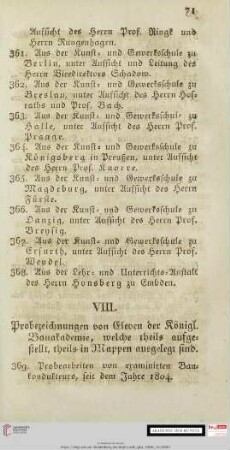 71
Aufsicht des Herrn Prof. Ringk und
Herrn Rungenhagen.
361. Aus der Kunst- und Gewerksschule zu
Berlin, unter Aufsicht und Leitung des
Herrn Vicedirektors Schadow.
362. Aus der Kunst- und Gewerksschule zu
Breslau, unter Aufsicht des Herrn Hof-
raths und Prof. Bach.
363. Aus der Kunst- und Gewerksschule zu
Halle, unter Aufsicht des Herrn Prof.
Prange.
364. Aus der Kunst- und Gewerksschule zu
Königsberg in Preußen, unter Aufsicht
des Herrn Prof. Knorre.
365. Aus der Kunst- und Gewerksschule zu
Magdeburg, unter Aufsicht des Herrn
Fürste.
366. Aus der Kunst- und Gewerksschule zu
Danzig, unter Aufsicht des Herrn Prof.
Breysig.
367. Aus der Kunst- und Gewerksschule zu
Erfurth, unter Aufsicht des Herrn Prof.
Wendel.
368. Aus der Lehr- und Unterrichts-Anstalt
des Herrn Honsberg zu Embden.
VIII.
Probezeichnungen von Eleven der Königl.
Bauakademie, welche theils aufge-
stellt, theils in Mappen ausgelegt sind.
369. Probearbeiten von examinirten Bau-
kondukteurs, seit dem Jahre 1804.